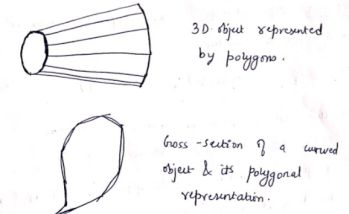 3D object represented
by polygons.
Cross-section of a curved
object & its polygonal
representation.